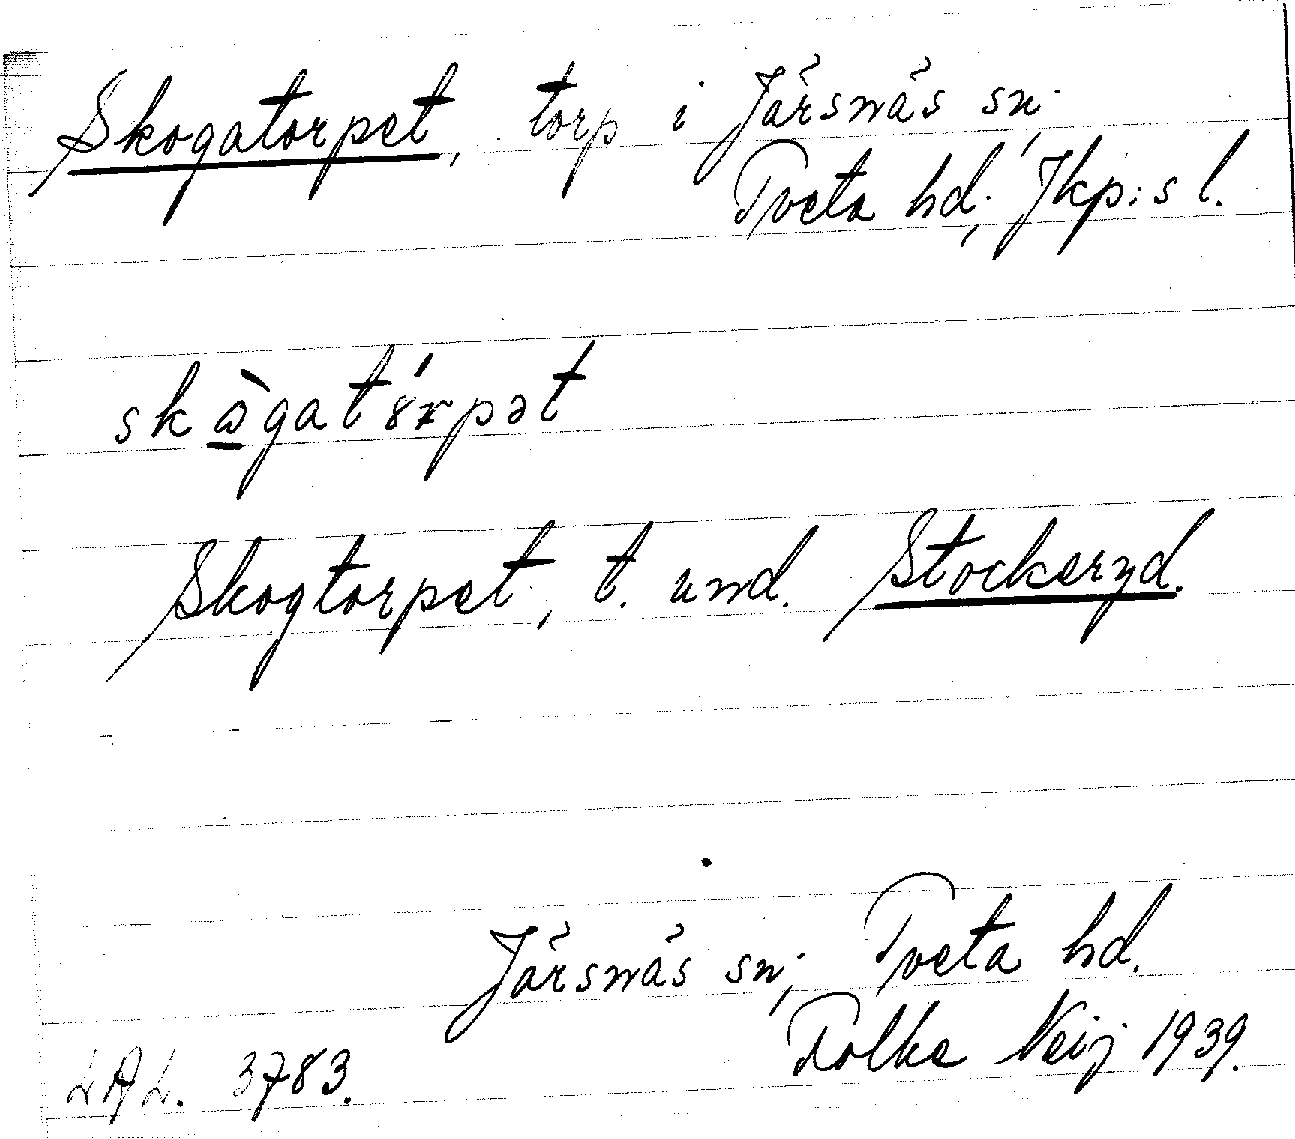 Skogatorpet, torp i Järsnäs sn.,
Tveta hd., Jkp:s l.
Skogtorpet, t. und. Stockeryd.
Järsnäs sn., Tveta hd.
Folke Neij 1939.
LAL. 3783.